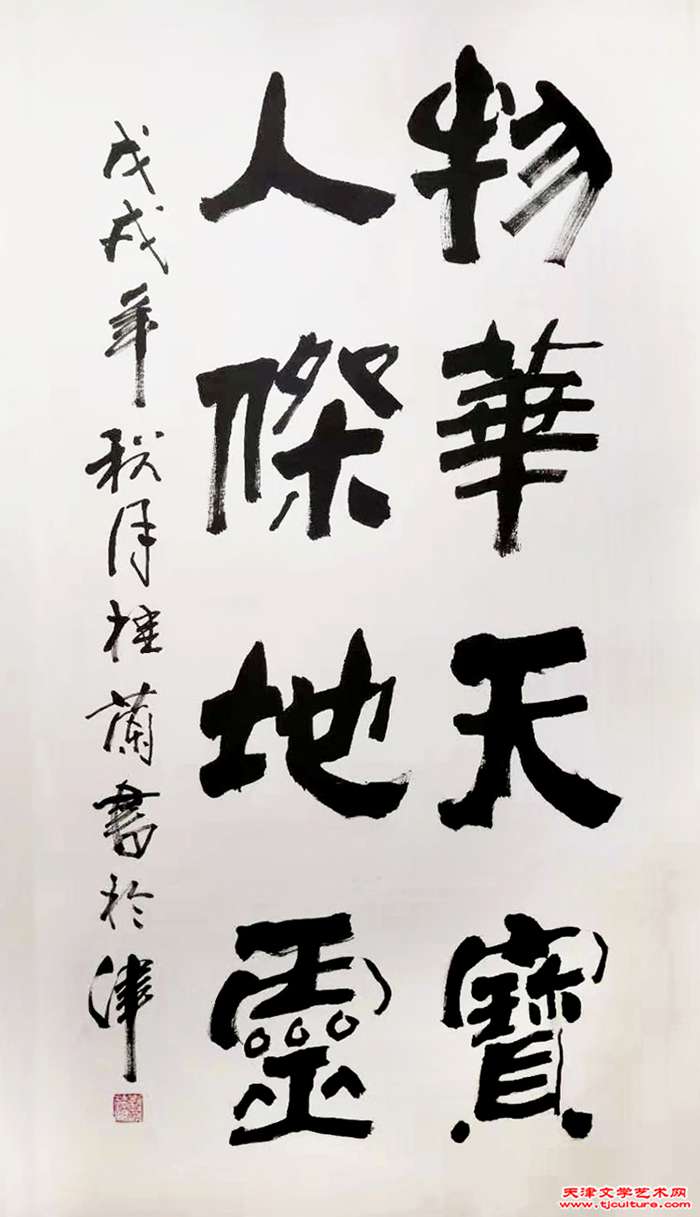 物華天寶
人傑地靈
戊戌年秋月桂蘭書於津
天津文学艺术网
www.tjculture.com